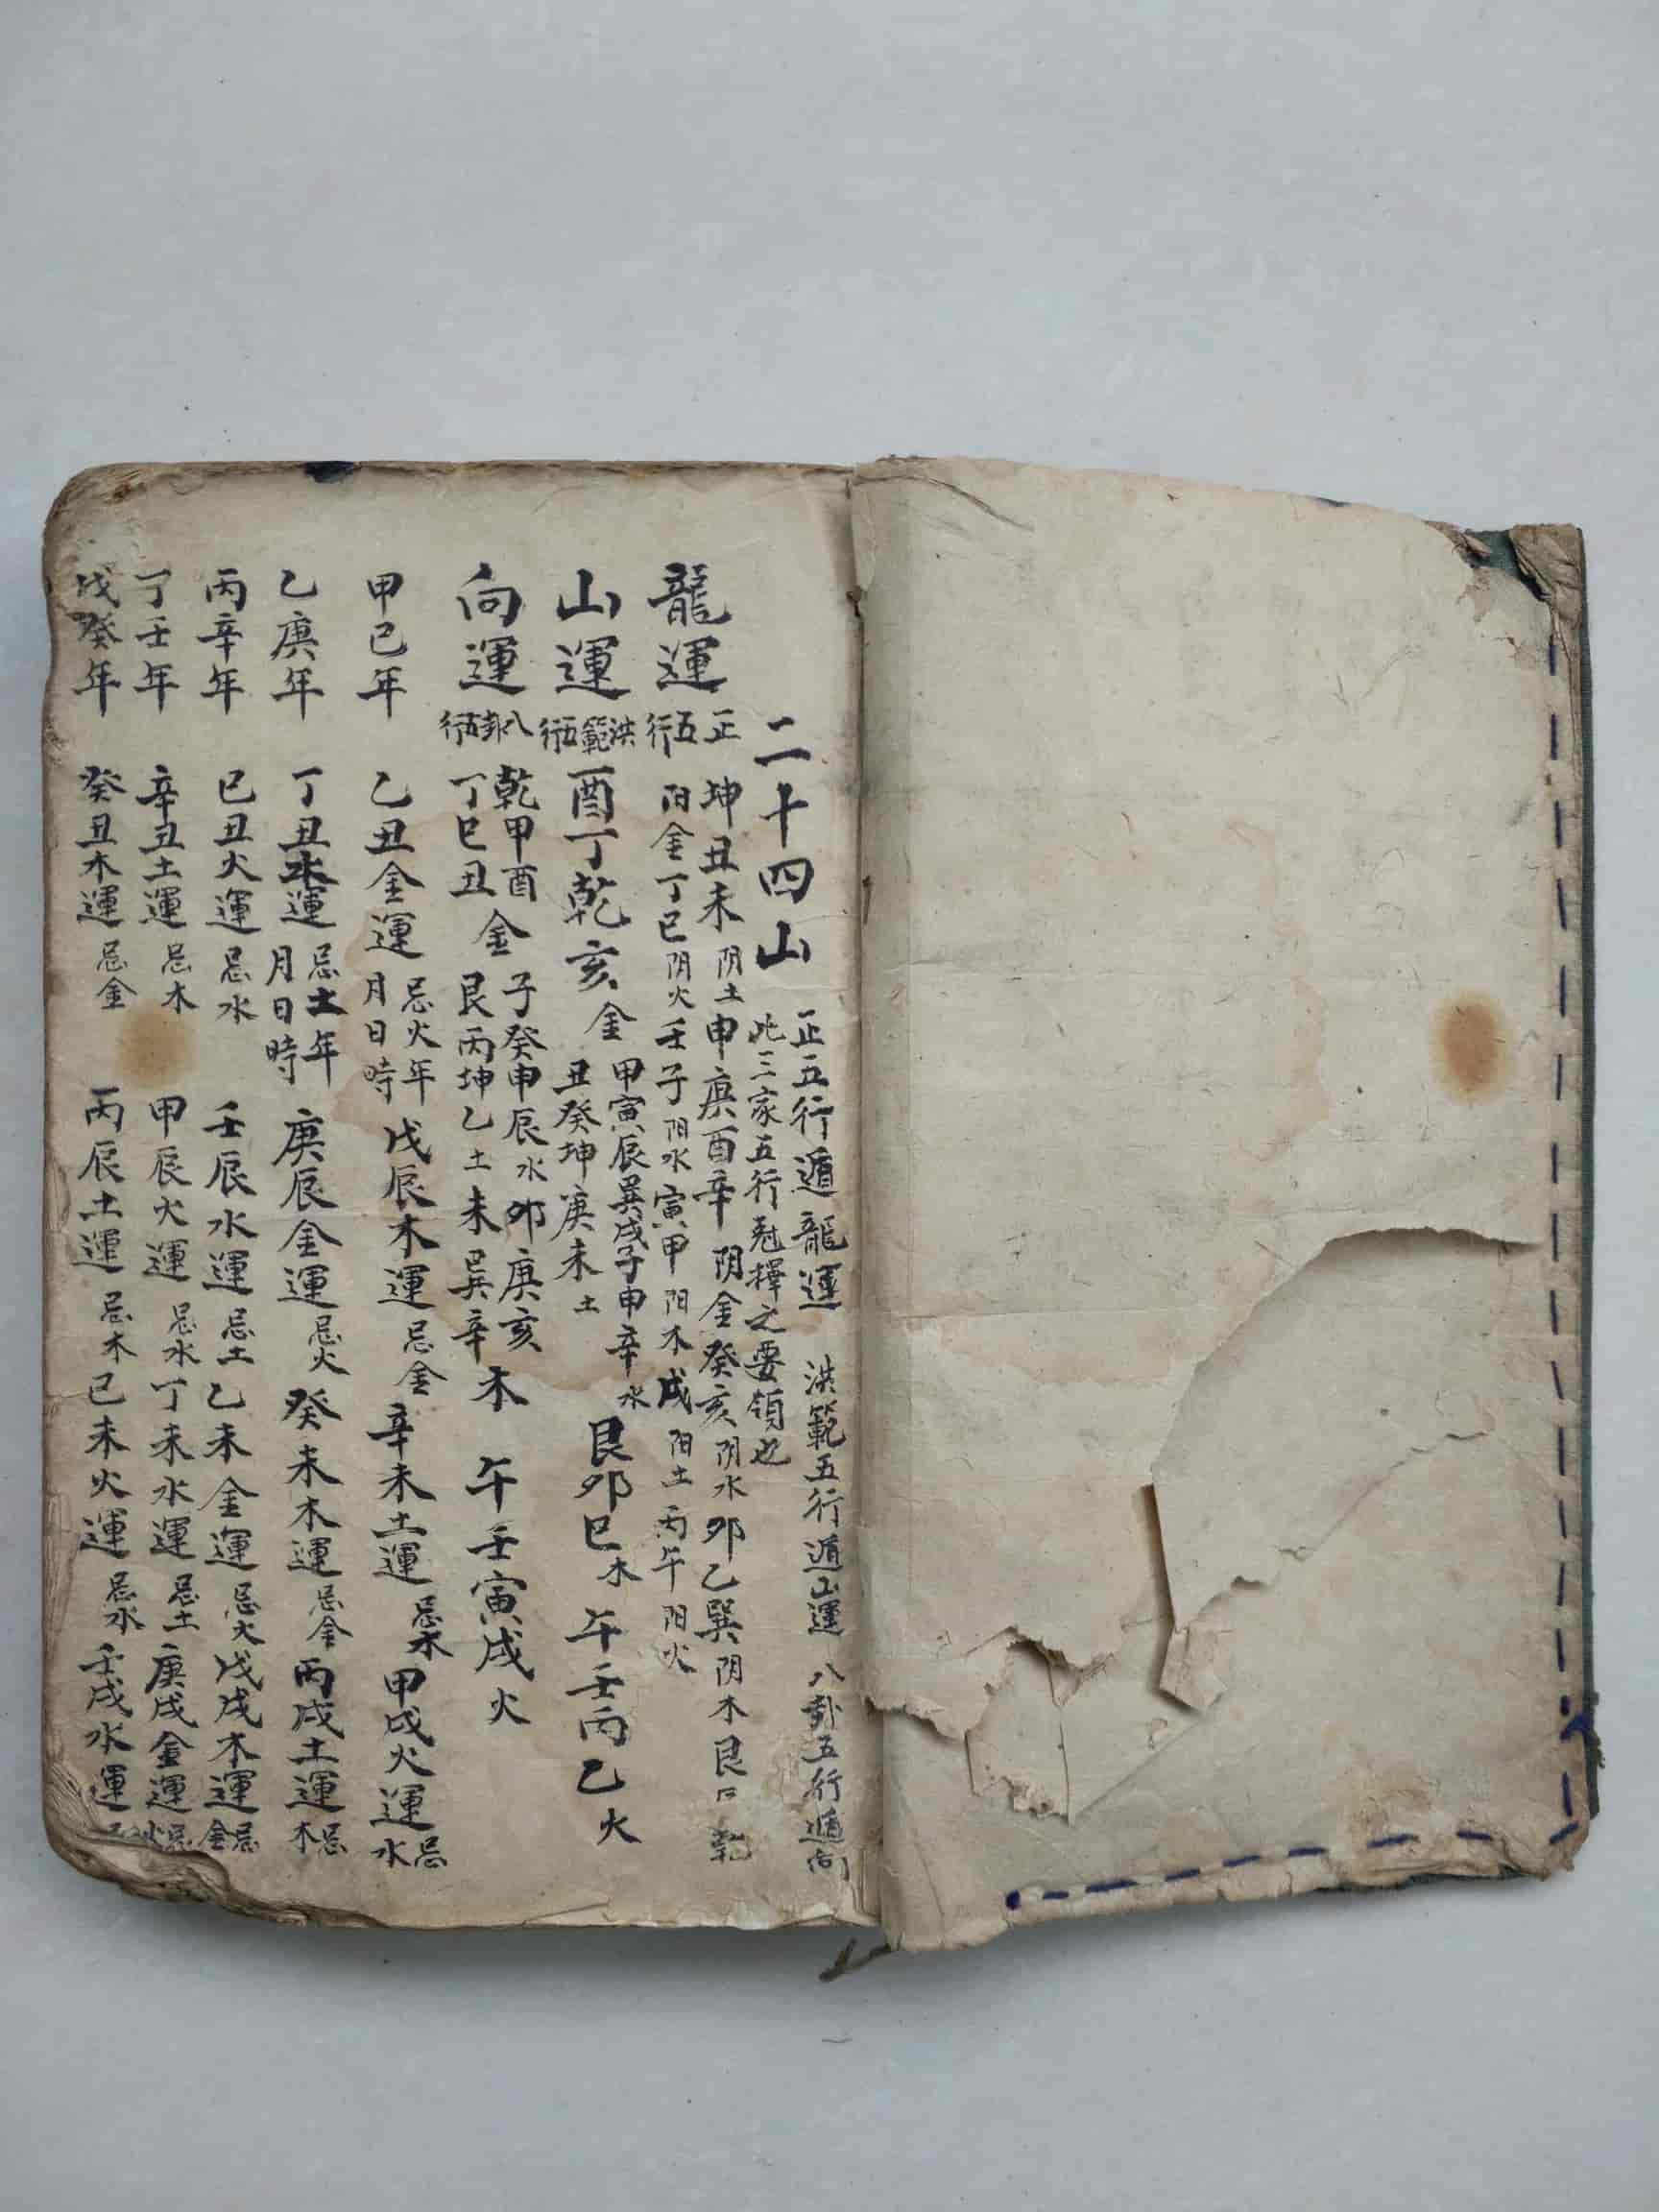 二十四山 正五行遁龍運 洪範五行遁山運 八卦五行遁向
此三家五行尅擇之要領也
龍運 正五行 坤丑未阴土申庚酉辛阴金癸亥阴水卯乙巽阴木艮 乾
阳金丁巳阴火壬子阳水寅甲阳木戌阳土丙午阳火
山運 洪範五行 酉丁乾亥金 甲寅辰巽戌子申辛水
丑癸坤庚未土 艮卯巳木 午壬丙乙火
向運 八卦五行 乾甲酉
丁巳丑金 子癸申辰水卯庚亥
艮丙坤乙土未巽辛木 午壬寅戌火
甲己年 乙丑金運 忌火年月日時 戊辰木運 忌金 辛未土運 忌木 甲戌火運 忌水
乙庚年 丁丑水運 忌土年月日時 庚辰金運 忌火 癸未木運 忌金 丙戌土運 忌木
丙辛年 己丑火運 忌水 壬辰水運 忌土 乙未金運 忌火 戊戌木運 忌金
丁壬年 辛丑土運 忌木 甲辰火運 忌水 丁未水運 忌土 庚戌金運 忌火
戊癸年 癸丑木運 忌金 丙辰土運 忌木 己未火運 忌水 壬戌水運